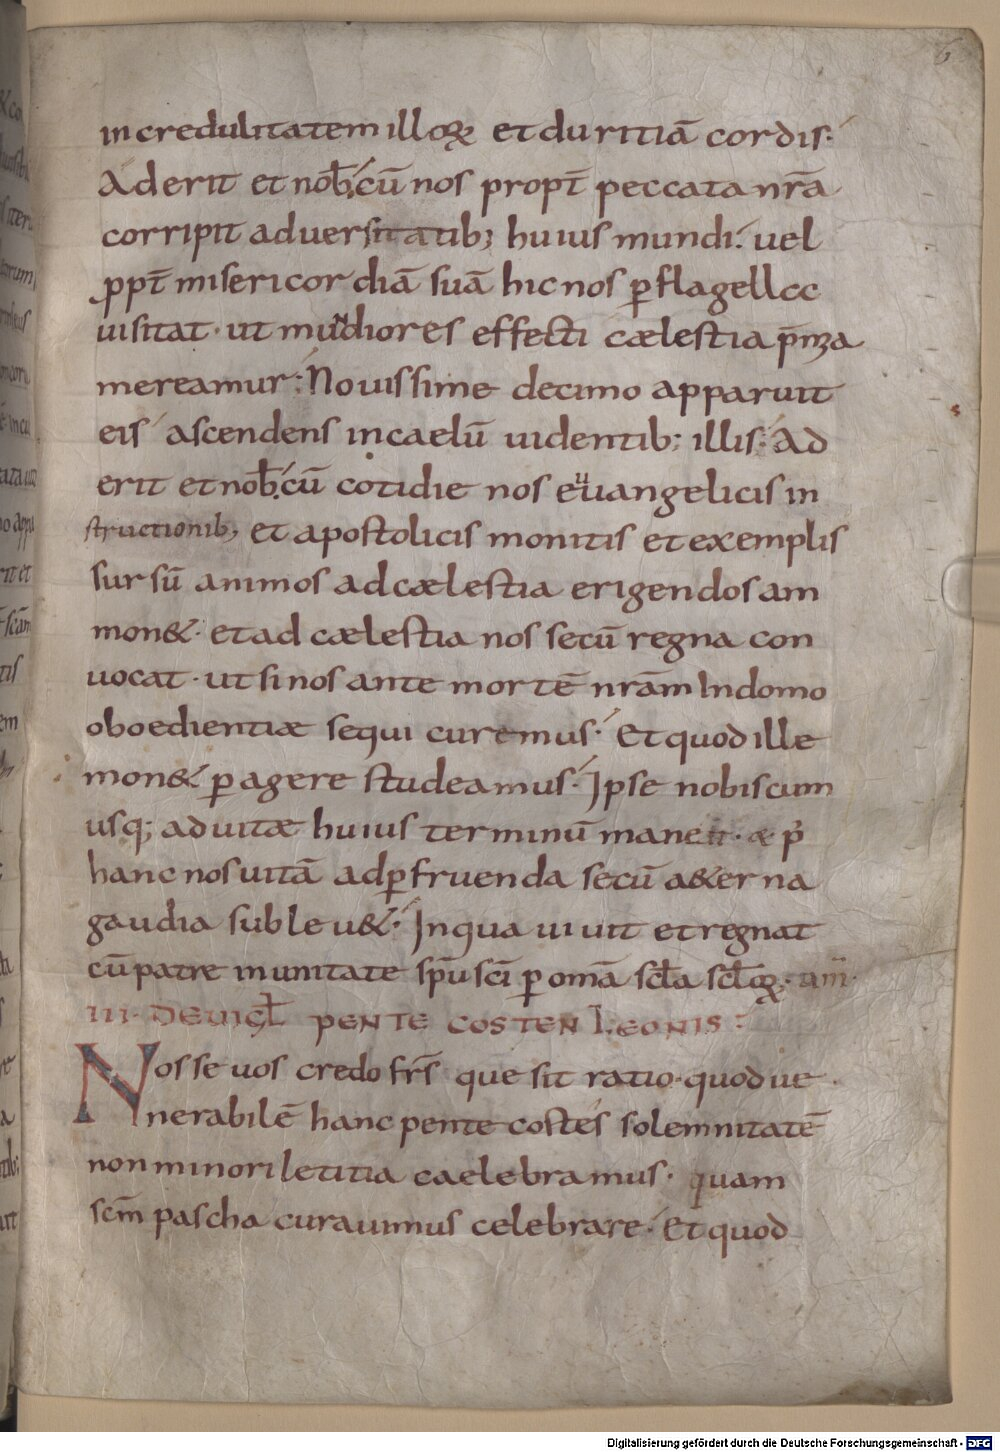 6
incredulitatem illoꝝ et duritiā cordis·
Aderit et nob̄ cū nos propt̄ peccata nr̄a
corripit aduersitatib; huius mundi· uel
ꝓpt̄ misericordiā suā hic nos ꝑ flagella
uisitat· ut mundiores effecti cælestia p̄mia
mereamur· Nouissime decimo apparuit
eis ascendens in caelū uidentib; illis· Ad
erit et nob̄ cū cotidie nos euuangelicis in
structionib; et apostolicis monitis et exemplis
sursū animos ad cælestia erigendos am
mon&· et ad cælestia nos secū regna con
uocat· ut si nos ante mortē nr̄am In domo
oboedientiæ sequi curemus· Et quod ille
mon& ꝑagere studeamus· Ipse nobiscum
usq; ad uitæ huius terminū manet· & p̄
hanc nos uitā ad ꝑfruenda secū a&erna
gaudia subleu&· In qua uiuit et regnat
cū patre in unitate sp̄u sc̄i ꝑ omā scl̄a scl̄oꝝ· am̄·
III· DE UIGL̄ PENTECOSTEN LEONIS·
Nosse uos credo fr̄s que sit ratio· quod ue
nerabilē hanc pentecostes solemnitatē
non minori letitia caelebramus· quam
sc̄m pascha curauimus celebrare· Et quod
Digitalisierung gefördert durch die Deutsche Forschungsgemeinschaft - DFG